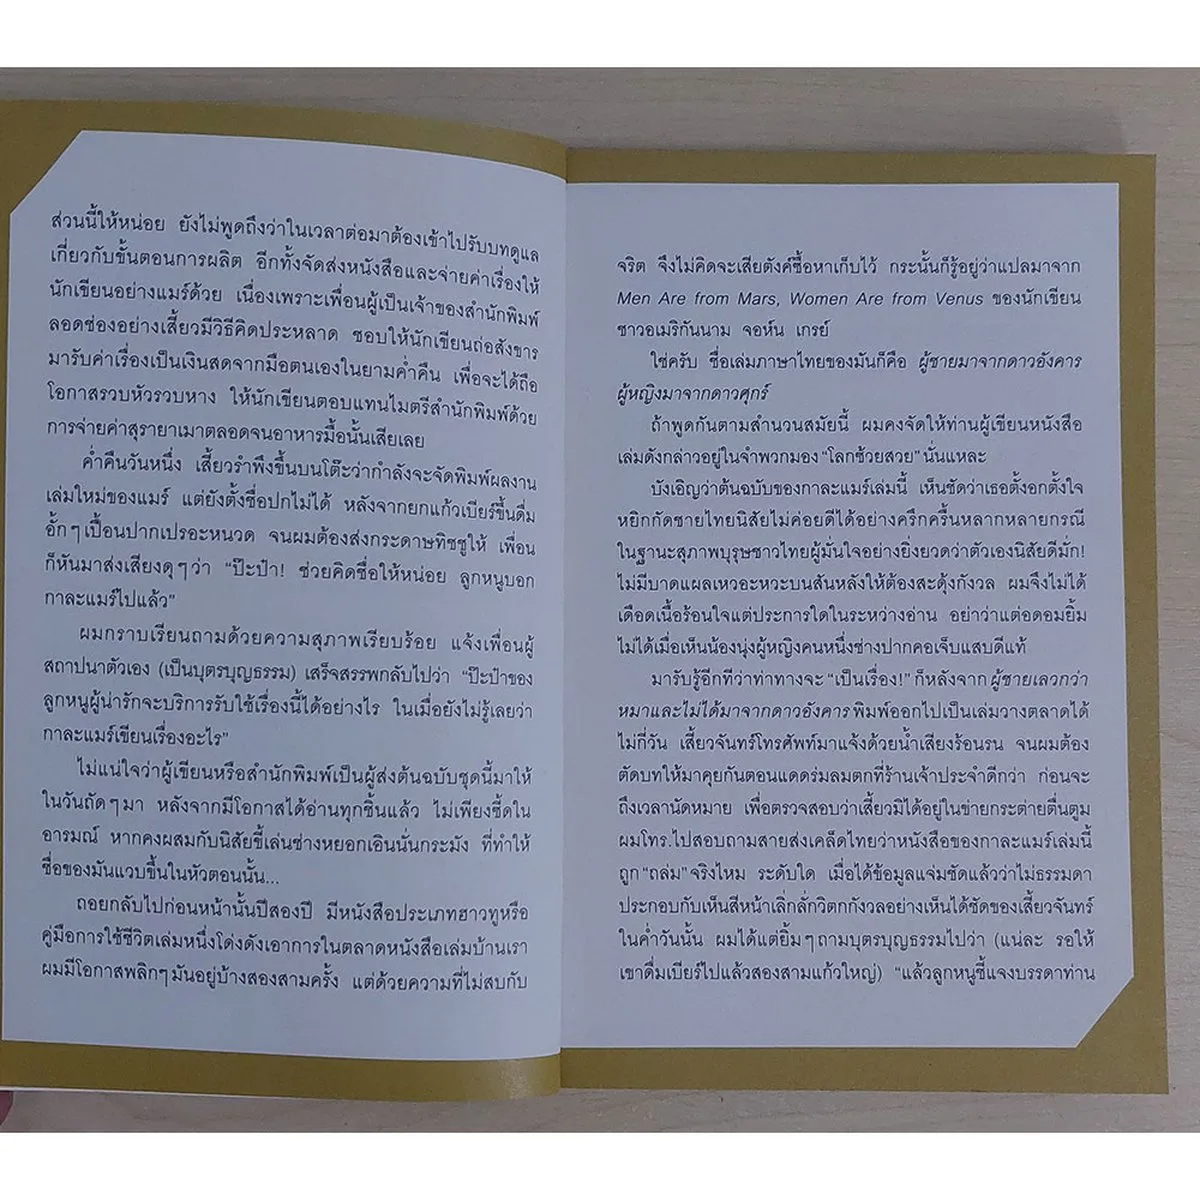 ส่วนนี้ให้หน่อย ยังไม่พูดถึงว่าในเวลาต่อมาต้องเข้าไปรับบทดูแล
เกี่ยวกับขั้นตอนการผลิต อีกทั้งจัดส่งหนังสือและจ่ายค่าเรื่องให้
นักเขียนอย่างแมร์ด้วย เนื่องเพราะเพื่อนผู้เป็นเจ้าของสำนักพิมพ์
ลอดช่องอย่างเสี้ยวมีวิธีคิดประหลาด ชอบให้นักเขียนถ่อสังขาร
มารับค่าเรื่องเป็นเงินสดจากมือตนเองในยามค่ำคืน เพื่อจะได้ถือ
โอกาสรวบหัวรวบหาง ให้นักเขียนตอบแทนไมตรีสำนักพิมพ์ด้วย
การจ่ายค่าสุรายาเมาตลอดจนอาหารมื้อนั้นเสียเลย
ค่ำคืนวันหนึ่ง เสี้ยวรำพึงขึ้นบนโต๊ะว่ากำลังจะจัดพิมพ์ผลงาน
เล่มใหม่ของแมร์ แต่ยังตั้งชื่อปกไม่ได้ หลังจากยกแก้วเบียร์ขึ้นดื่ม
อั้กๆ เปื้อนปากเปรอะหนวด จนผมต้องส่งกระดาษทิชชูให้ เพื่อน
ก็หันมาส่งเสียงดุๆ ว่า “ป๊ะป๋า! ช่วยคิดชื่อให้หน่อย ลูกหนูบอก
กาละแมร์ไปแล้ว”
ผมกราบเรียนถามด้วยความสุภาพเรียบร้อย แจ้งเพื่อนผู้
สถาปนาตัวเอง (เป็นบุตรบุญธรรม) เสร็จสรรพกลับไปว่า “ป๊ะป๋าของ
ลูกหนูผู้น่ารักจะบริการรับใช้เรื่องนี้ได้อย่างไร ในเมื่อยังไม่รู้เลยว่า
กาละแมร์เขียนเรื่องอะไร”
ไม่แน่ใจว่าผู้เขียนหรือสำนักพิมพ์เป็นผู้ส่งต้นฉบับชุดนี้มาให้
ในวันถัดๆ มา หลังจากมีโอกาสได้อ่านทุกชิ้นแล้ว ไม่เพียงซี้ดใน
อารมณ์ หากคงผสมกับนิสัยขี้เล่นช่างหยอกเอินนั่นกระมัง ที่ทำให้
ชื่อของมันแวบขึ้นในหัวตอนนั้น...
ถอยกลับไปก่อนหน้านั้นปีสองปี มีหนังสือประเภทฮาวทูหรือ
คู่มือการใช้ชีวิตเล่มหนึ่งโด่งดังเอาการในตลาดหนังสือเล่มบ้านเรา
ผมมีโอกาสพลิกๆ มันอยู่บ้างสองสามครั้ง แต่ด้วยความที่ไม่สบกับ
จริต จึงไม่คิดจะเสียตังค์ซื้อหาเก็บไว้ กระนั้นก็รู้อยู่ว่าแปลมาจาก
Men Are from Mars, Women Are from Venus ของนักเขียน
ชาวอเมริกันนาม จอห์น เกรย์
ใช่ครับ ชื่อเล่มภาษาไทยของมันก็คือ ผู้ชายมาจากดาวอังคาร
ผู้หญิงมาจากดาวศุกร์
ถ้าพูดกันตามสำนวนสมัยนี้ ผมคงจัดให้ท่านผู้เขียนหนังสือ
เล่มดังกล่าวอยู่ในจำพวกมอง “โลกซ้วยสวย” นั่นแหละ
บังเอิญว่าต้นฉบับของกาละแมร์เล่มนี้ เห็นชัดว่าเธอตั้งอกตั้งใจ
หยิกกัดชายไทยนิสัยไม่ค่อยดีได้อย่างครึกครื้นหลากหลายกรณี
ในฐานะสุภาพบุรุษชาวไทยผู้มั่นใจอย่างยิ่งยวดว่าตัวเองนิสัยดีมั่ก!
ไม่มีบาดแผลเหวอะหวะบนสันหลังให้ต้องสะดุ้งกังวล ผมจึงไม่ได้
เดือดเนื้อร้อนใจแต่ประการใดในระหว่างอ่าน อย่าว่าแต่อดอมยิ้ม
ไม่ได้เมื่อเห็นน้องนุ่งผู้หญิงคนหนึ่งช่างปากคอเจ็บแสบดีแท้
มารับรู้อีกทีว่าท่าทางจะ “เป็นเรื่อง!” ก็หลังจาก ผู้ชายเลวกว่า
หมาและไม่ได้มาจากดาวอังคาร พิมพ์ออกไปเป็นเล่มวางตลาดได้
ไม่กี่วัน เสี้ยวจันทร์โทรศัพท์มาแจ้งด้วยน้ำเสียงร้อนรน จนผมต้อง
ตัดบทให้มาคุยกันตอนแดดร่มลมตกที่ร้านเจ้าประจำดีกว่า ก่อนจะ
ถึงเวลานัดหมาย เพื่อตรวจสอบว่าเสี้ยวมิได้อยู่ในข่ายกระต่ายตื่นตูม
ผมโทร.ไปสอบถามสายส่งเคล็ดไทยว่าหนังสือของกาละแมร์เล่มนี้
ถูก “ถล่ม” จริงไหม ระดับใด เมื่อได้ข้อมูลแจ่มชัดแล้วว่าไม่ธรรมดา
ประกอบกับเห็นสีหน้าเลิ่กลั่กวิตกกังวลอย่างเห็นได้ชัดของเสี้ยวจันทร์
ในค่ำวันนั้น ผมได้แต่ยิ้มๆ ถามบุตรบุญธรรมไปว่า (แน่ละ รอให้
เขาดื่มเบียร์ไปแล้วสองสามแก้วใหญ่) “แล้วลูกหนูชี้แจงบรรดาท่าน